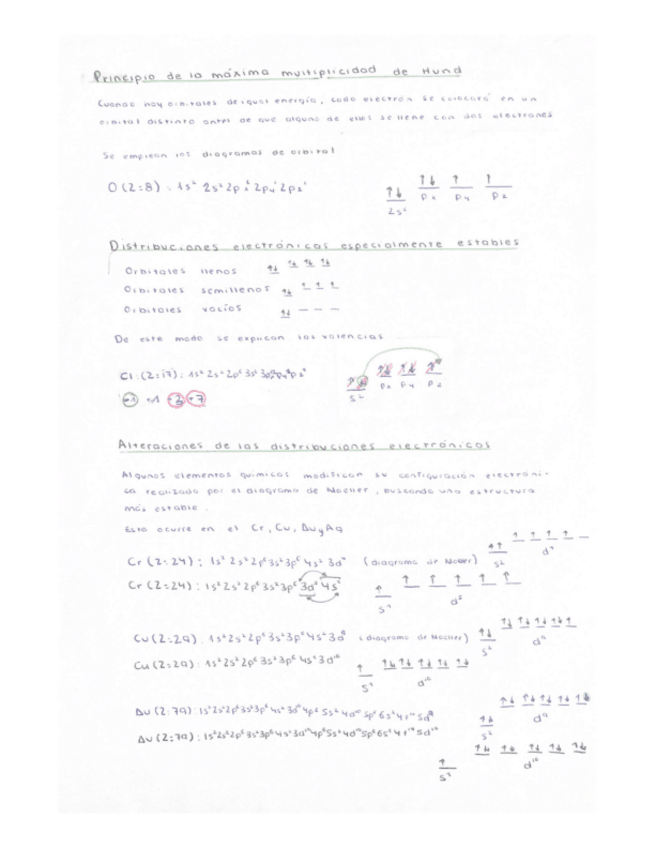 Principio de la máxima multiplicidad de Hund
Cuando hay orbitales de igual energía, cada electrón se colocará en un
orbital distinto antes de que alguno de ellos se llene con dos electrones
Se emplean los diagramas de orbital
O (Z=8) : 1s² 2s² 2px² 2py¹ 2pz¹
↑↓ ↑↓ ↑ ↑
2s² px py pz
Distribuciones electrónicas especialmente estables
Orbitales llenos ↑↓ ↑↓ ↑↓ ↑↓
Orbitales semillenos ↑↓ ↑ ↑ ↑
Orbitales vacíos ↑↓
De este modo se explican las valencias
Cl : (Z=17) : 1s² 2s² 2p⁶ 3s²
s² px py pz
+3 +7
Alteraciones de las distribuciones electrónicas
Algunos elementos químicos modifican su configuración electróni-
ca realizado por el diagrama de Moeller, buscando una estructura
más estable.
Esto ocurre en el Cr, Cu, Au y Ag
Cr (Z=24) : 1s² 2s² 2p⁶ 3s² 3p⁶ 4s² 3d⁴ (diagrama de Moeller) ↑↓ ↑ ↑ ↑ ↑
s² d⁴
Cr (Z=24) : 1s² 2s² 2p⁶ 3s² 3p⁶ 3d⁵ 4s¹ ↑ ↑ ↑ ↑ ↑ ↑
s¹ d⁵
Cu (Z=29) : 1s² 2s² 2p⁶ 3s² 3p⁶ 4s² 3d⁹ (diagrama de Moeller) ↑↓ ↑↓ ↑↓ ↑↓ ↑↓ ↑
s² d⁹
Cu (Z=29) : 1s² 2s² 2p⁶ 3s² 3p⁶ 4s¹ 3d¹⁰ ↑ ↑↓ ↑↓ ↑↓ ↑↓ ↑↓
s¹ d¹⁰
Au (Z=79) : 1s² 2s² 2p⁶ 3s² 3p⁶ 4s² 3d¹⁰ 4p⁶ 5s² 4d¹⁰ 5p⁶ 6s² 4f¹⁴ 5d⁹
s² d⁹
Au (Z=79) : 1s² 2s² 2p⁶ 3s² 3p⁶ 4s² 3d¹⁰ 4p⁶ 5s² 4d¹⁰ 5p⁶ 6s² 4f¹⁴ 5d¹⁰
↑ ↑↓ ↑↓ ↑↓ ↑↓ ↑↓
s¹ d¹⁰